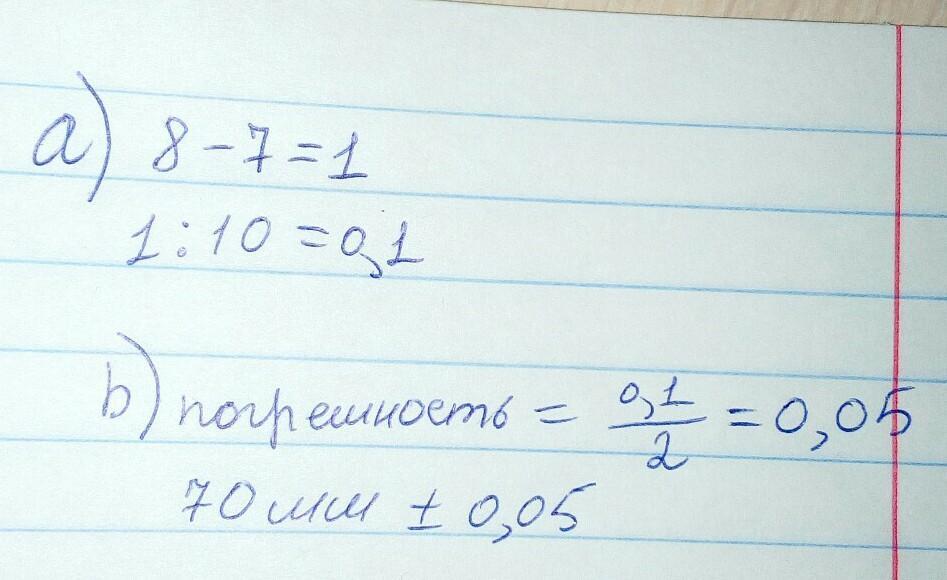 a) 8-7=1
1:10=0,1
b) погрешность = 0,1/2 = 0,05
70 мм ± 0,05